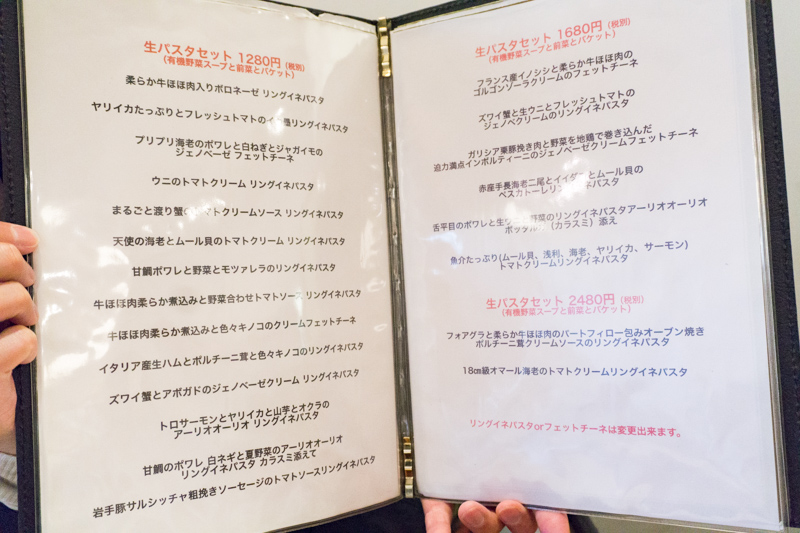 生パスタセット 1280円（税別）
（有機野菜スープと前菜とバケット）
柔らか牛ほほ肉入りボロネーゼ リングイネパスタ
ヤリイカたっぷりとフレッシュトマトのイ 墨リングイネパスタ
プリプリ海老のポワレと白ねぎとジャガイモの
ジェノベーゼ フェットチーネ
ウニのトマトクリーム リングイネパスタ
まるごと渡り蟹の トマトクリームソース リングイネパスタ
天使の海老とムール貝のトマトクリーム リングイネパスタ
甘鯛ポワレと野菜とモツァレラのリングイネパスタ
牛ほほ肉柔らか煮込みと野菜合わせトマトソース リングイネパスタ
牛ほほ肉柔らか煮込みと色々キノコのクリームフェットチーネ
イタリア産生ハムとポルチーニ茸と色々キノコのリングイネパスタ
ズワイ蟹とアボガドのジェノベーゼクリーム リングイネパスタ
トロサーモンとヤリイカと山芋とオクラの
アーリオオーリオ リングイネパスタ
甘鯛のポワレ 白ネギと夏野菜のアーリオオーリオ
リングイネパスタ カラスミ添えて
岩手豚サルシッチャ粗挽きソーセージのトマトソースリングイネパスタ
生パスタセット 1680円（税別）
（有機野菜スープと前菜とバケット）
フランス産イノシシと柔らか牛ほほ肉の
ゴルゴンゾーラクリームのフェットチーネ
ズワイ蟹と生ウニとフレッシュトマトの
ジェノベクリームのリングイネパスタ
ガリシア栗豚挽き肉と野菜を地鶏で巻き込んだ
迫力満点インボルティーニのジェノベーゼクリームフェットチーネ
赤座手長海老二尾とイイダコとムール貝の
ペスカトーレリングイネパスタ
舌平目のポワレと生ウニと野菜のリングイネパスタアーリオオーリオ
ボッタルガ（カラスミ）添え
魚介たっぷり(ムール貝、浅利、海老、ヤリイカ、サーモン)
トマトクリームリングイネパスタ
生パスタセット 2480円（税別）
（有機野菜スープと前菜とバケット）
フォアグラと柔らか牛ほほ肉のパートフィロー包みオーブン焼き
ポルチーニ茸クリームソースのリングイネパスタ
18㎝級オマール海老のトマトクリームリングイネパスタ
リングイネパスタorフェットチーネは変更出来ます。